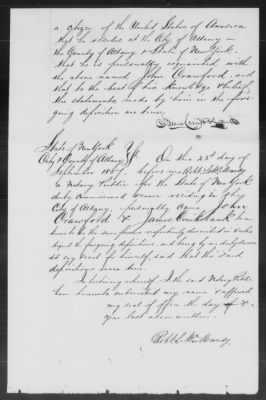 a citizen of the United States of America
that he resides at the City of Albany in
the County of Albany & State of New York.
That he is personally acquainted with
the above named John Crawford, and
that to the best of his knowledge & belief,
the statements made by him in the fore-
going deposition are true.
State of New York
City & County of Albany On this 23d day of
September before me Robt. 
a Notary Public for the State of New York
duly Commissioned & sworn residing in the
City of Albany, personally came John
Crawford & James Cruikshank known
to me to be the same persons respectively described in & who
signed the foregoing depositions, and being by me duly sworn
did say each for himself, said that the said
depositions were true.
In testimony whereof, I the said Notary Public
have hereunto subscribed my name & affixed
my seal of office the day &
year last above written.
Robt.